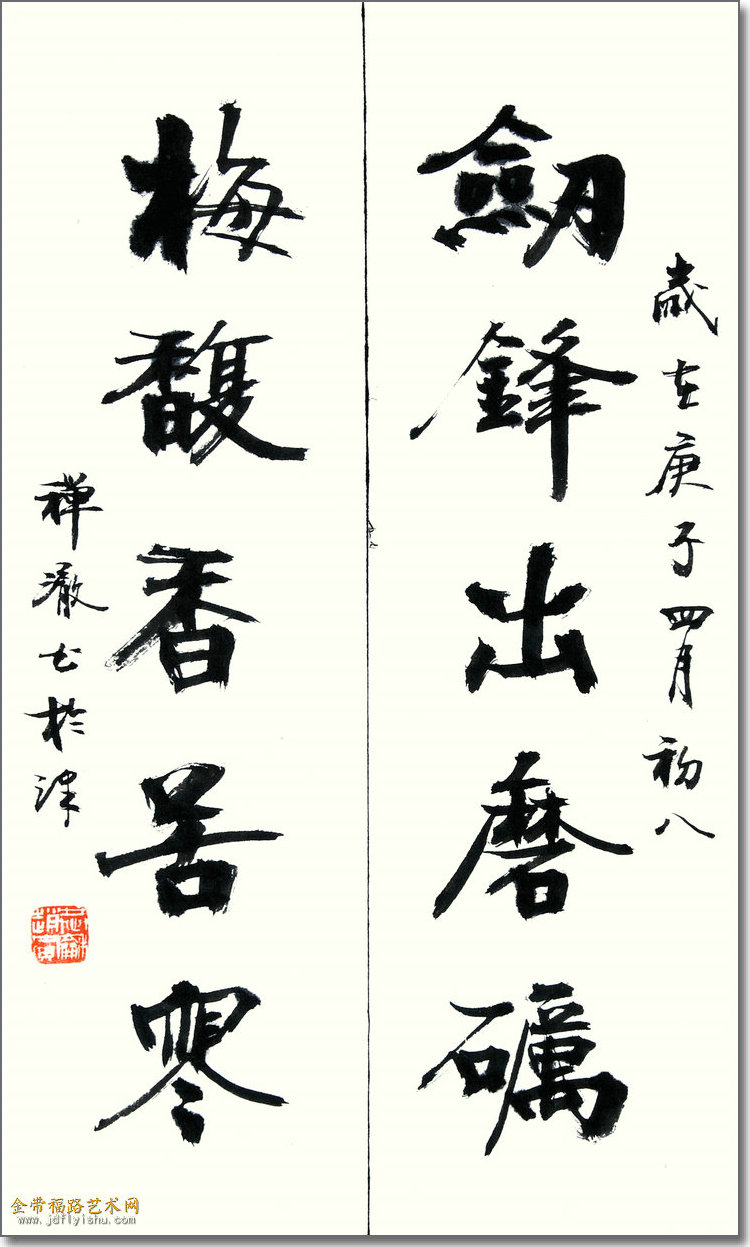 歲在庚子四月初八
劔鋒出磨礪
梅馥香苦寒
禅澈书於津
金带福路艺术网
www.jdflyishu.com